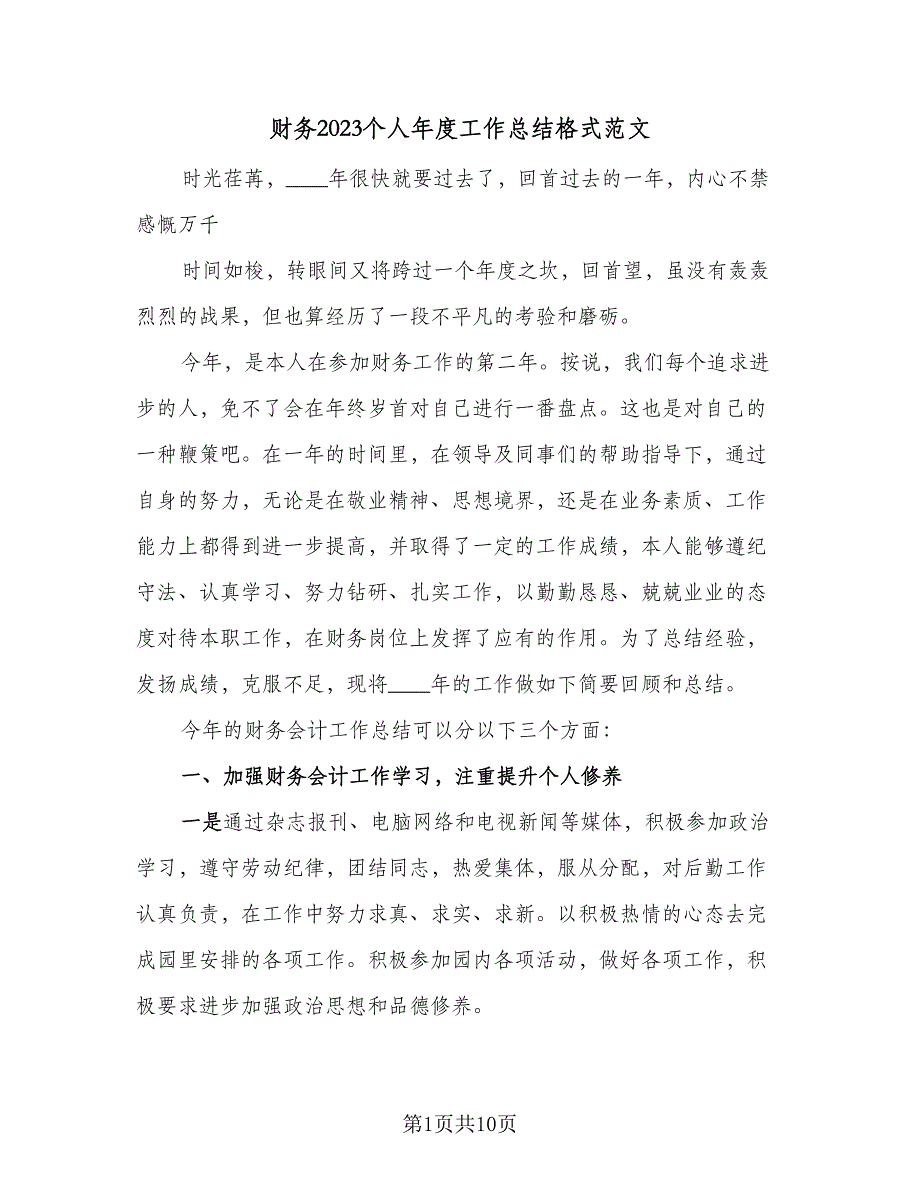 财务2023个人年度工作总结格式范文
时光荏苒，____年很快就要过去了，回首过去的一年，内心不禁
感慨万千
时间如梭，转眼间又将跨过一个年度之坎，回首望，虽没有轰轰
烈烈的战果，但也算经历了一段不平凡的考验和磨砺。
今年，是本人在参加财务工作的第二年。按说，我们每个追求进
步的人，免不了会在年终岁首对自己进行一番盘点。这也是对自己的
一种鞭策吧。在一年的时间里，在领导及同事们的帮助指导下，通过
自身的努力，无论是在敬业精神、思想境界，还是在业务素质、工作
能力上都得到进一步提高，并取得了一定的工作成绩，本人能够遵纪
守法、认真学习、努力钻研、扎实工作，以勤勤恳恳、兢兢业业的态
度对待本职工作，在财务岗位上发挥了应有的作用。为了总结经验，
发扬成绩，克服不足，现将____年的工作做如下简要回顾和总结。
今年的财务会计工作总结可以分以下三个方面：
一、加强财务会计工作学习，注重提升个人修养
一是通过杂志报刊、电脑网络和电视新闻等媒体，积极参加政治
学习，遵守劳动纪律，团结同志，热爱集体，服从分配，对后勤工作
认真负责，在工作中努力求真、求实、求新。以积极热情的心态去完
成园里安排的各项工作。积极参加园内各项活动，做好各项工作，积
极要求进步加强政治思想和品德修养。
第1页共10页